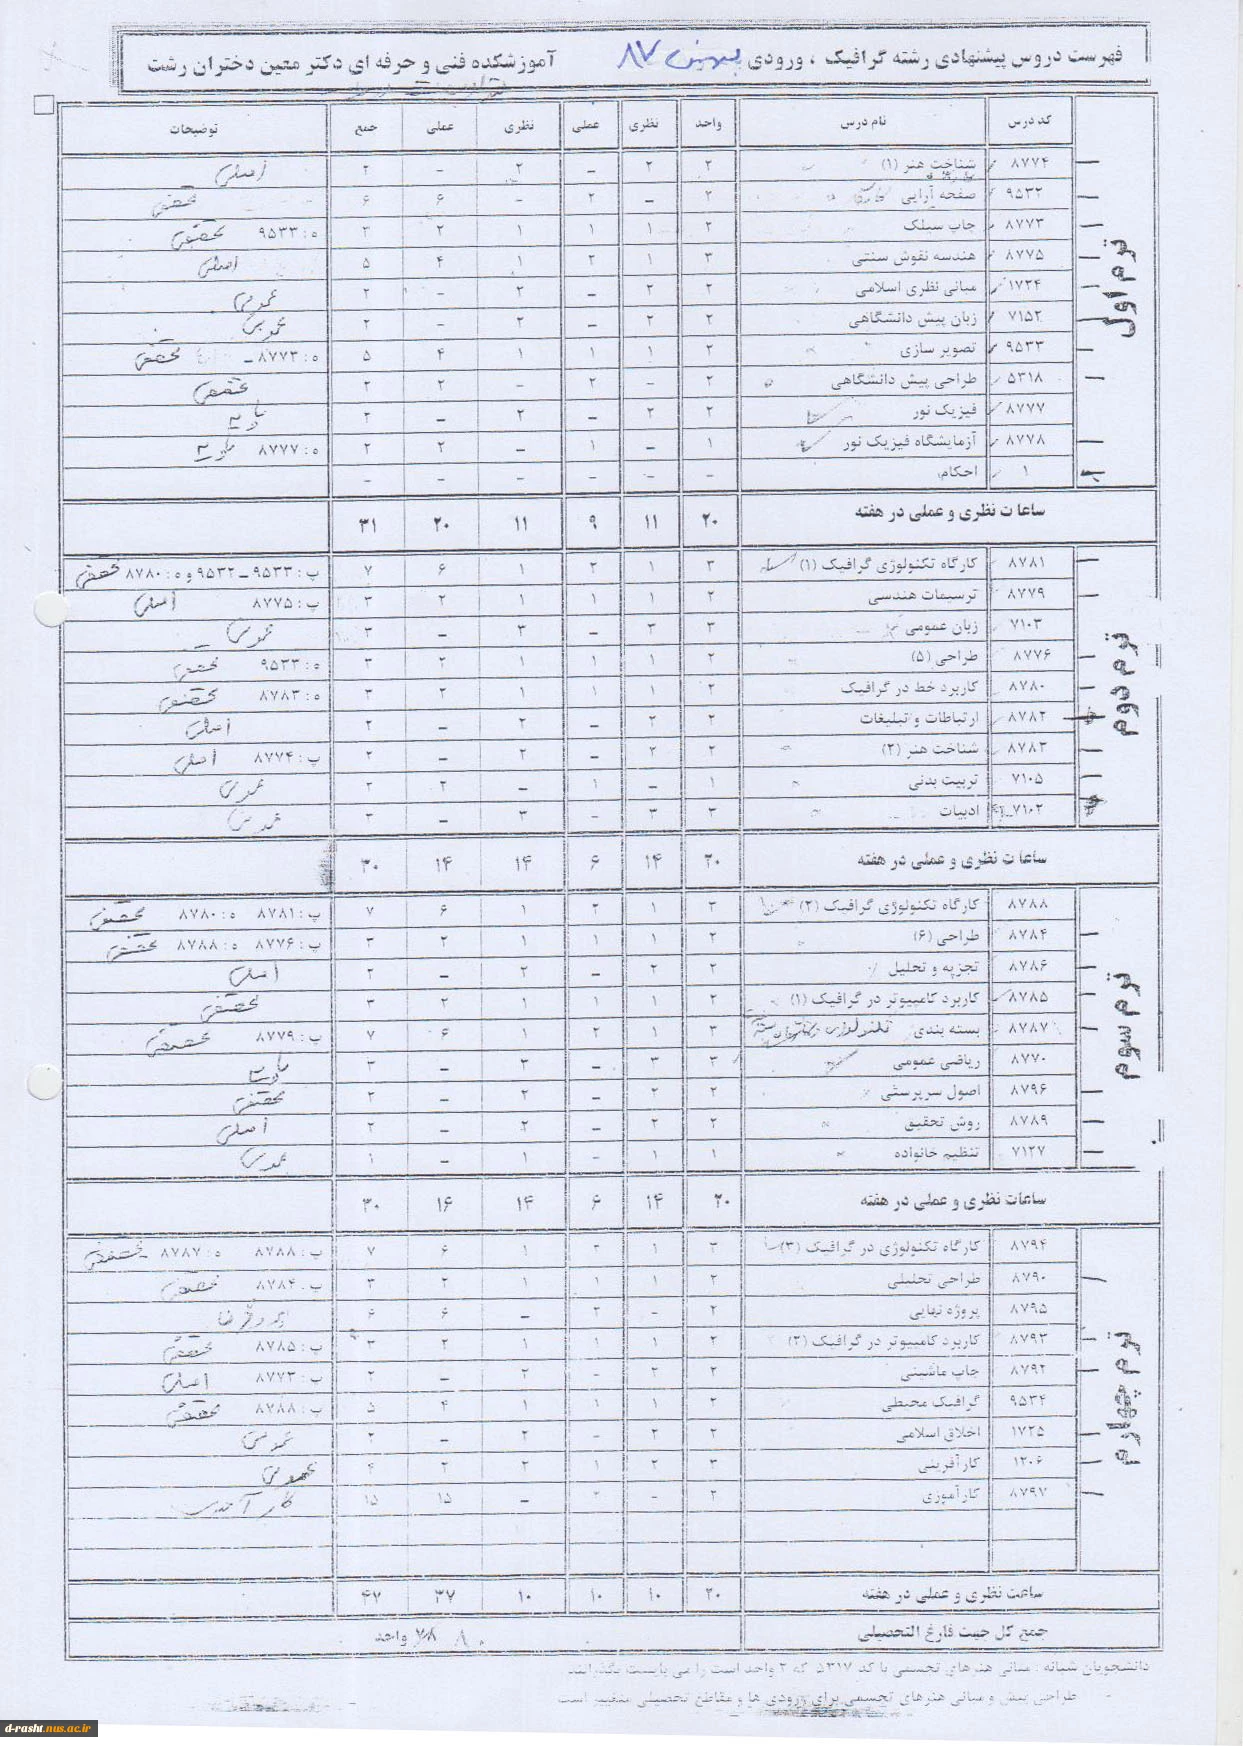 فهرست دروس پیشنهادی رشته گرافیک ، ورودی بهمن ۸۷ آموزشکده فنی و حرفه ای دکتر معین دختران رشت
کد درس نام درس واحد نظری عملی نظری عملی جمع توضیحات
ترم اول
۸۷۷۴ شناخت هنر (۱) ۲ ۲ – ۲ – ۲ اصلی
۹۵۳۲ صفحه آرایی ۲ – ۲ – ۶ ۶ تخصصی
۸۷۷۳ چاپ سیلک ۲ ۱ ۱ ۱ ۲ ۳ ه : ۹۵۳۳ تخصصی
۸۷۷۵ هندسه نقوش سنتی ۳ ۱ ۲ ۱ ۴ ۵ اصلی
۱۷۲۴ مبانی نظری اسلامی ۲ ۲ – ۲ – ۲ عمومی
۷۱۵۲ زبان پیش دانشگاهی ۲ ۲ – ۲ – ۲ عمومی
۹۵۳۳ تصویر سازی ۲ ۱ ۱ ۱ ۴ ۵ ه : ۸۷۷۳ تخصصی
۵۳۱۸ طراحی پیش دانشگاهی ۲ – ۲ – ۲ ۲ تخصصی
۸۷۷۷ فیزیک نور ۲ ۲ – ۲ – ۲ پایه
۸۷۷۸ آزمایشگاه فیزیک نور ۱ – ۱ – ۲ ۲ ه : ۸۷۷۷ پایه
۱ احکام – – – – – –
ساعات نظری و عملی در هفته ۲۰ ۱۱ ۹ ۱۱ ۲۰ ۳۱
ترم دوم
۸۷۸۱ کارگاه تکنولوژی گرافیک (۱) ۳ ۱ ۲ ۱ ۶ ۷ پ : ۹۵۳۳ – ۹۵۳۲ و ه : ۸۷۸۰ تخصصی
۸۷۷۹ ترسیمات هندسی ۲ ۱ ۱ ۱ ۲ ۳ پ : ۸۷۷۵ اصلی
۷۱۰۳ زبان عمومی ۳ ۳ – ۳ – ۳ عمومی
۸۷۷۶ طراحی (۵) ۲ ۱ ۱ ۱ ۲ ۳ ه : ۹۵۳۳ تخصصی
۸۷۸۰ کاربرد خط در گرافیک ۲ ۱ ۱ ۱ ۲ ۳ ه : ۸۷۸۳ تخصصی
۸۷۸۲ ارتباطات و تبلیغات ۲ ۲ – ۲ – ۲ اصلی
۸۷۸۳ شناخت هنر (۲) ۲ ۲ – ۲ – ۲ پ : ۸۷۷۴ اصلی
۷۱۰۵ تربیت بدنی ۱ – ۱ – ۲ ۲ عمومی
۷۱۰۲ ادبیات ۳ ۳ – ۳ – ۳ عمومی
ساعات نظری و عملی در هفته ۲۰ ۱۴ ۶ ۱۴ ۱۴ ۳۰
ترم سوم
۸۷۸۸ کارگاه تکنولوژی گرافیک (۲) ۳ ۱ ۲ ۱ ۶ ۷ پ : ۸۷۸۱ ه : ۸۷۸۰ تخصصی
۸۷۸۴ طراحی (۶) ۲ ۱ ۱ ۱ ۲ ۳ پ : ۸۷۷۶ ه : ۸۷۸۸ تخصصی
۸۷۸۶ تجزیه و تحلیل ۲ ۲ – ۲ – ۲ اصلی
۸۷۸۵ کاربرد کامپیوتر در گرافیک (۱) ۲ ۱ ۱ ۱ ۲ ۳ تخصصی
۸۷۸۷ بسته بندی ۳ ۱ ۲ ۱ ۶ ۷ پ : ۸۷۷۹ تخصصی
۸۷۷۰ ریاضی عمومی ۳ ۳ – ۳ – ۳ پایه
۸۷۹۶ اصول سرپرستی ۲ ۲ – ۲ – ۲ تخصصی
۸۷۸۹ روش تحقیق ۲ ۲ – ۲ – ۲ اصلی
۷۱۲۷ تنظیم خانواده ۱ ۱ – ۱ – ۱ عمومی
ساعات نظری و عملی در هفته ۲۰ ۱۴ ۶ ۱۴ ۱۶ ۳۰
ترم چهارم
۸۷۹۴ کارگاه تکنولوژی در گرافیک (۳) ۳ ۱ ۲ ۱ ۶ ۷ پ : ۸۷۸۸ ه : ۸۷۸۷ تخصصی
۸۷۹۰ طراحی تحلیلی ۲ ۱ ۱ ۱ ۲ ۳ پ : ۸۷۸۴ تخصصی
۸۷۹۵ پروژه نهایی ۲ – ۲ – ۶ ۶
۸۷۹۳ کاربرد کامپیوتر در گرافیک (۲) ۲ ۱ ۱ ۱ ۲ ۳ پ : ۸۷۸۵ تخصصی
۸۷۹۲ چاپ ماشینی ۲ ۲ – ۲ – ۲ پ : ۸۷۷۳ اصلی
۹۵۳۴ گرافیک محیطی ۲ ۱ ۱ ۱ ۴ ۵ پ : ۸۷۸۸ تخصصی
۱۷۲۵ اخلاق اسلامی ۲ ۲ – ۲ – ۲ عمومی
۱۲۰۶ کارآفرینی ۳ ۲ ۱ ۲ ۲ ۴ عمومی
۸۷۹۷ کارآموزی ۲ – ۲ – ۱۵ ۱۵ کارآموزی
ساعت نظری و عملی در هفته ۲۰ ۱۰ ۱۰ ۱۰ ۳۷ ۴۷
جمع کل جهت فارغ التحصیلی ۷۸ ۸۰ واحد
دانشجویان شبانه : مبانی هنرهای تجسمی با کد ۵۳۱۷ که ۲ واحد است را می بایست بگذرانند
- طراحی پیش و مبانی هنرهای تجسمی برای ورودی ها و مقاطع تحصیلی متغییر است
d-rasht.nus.ac.ir